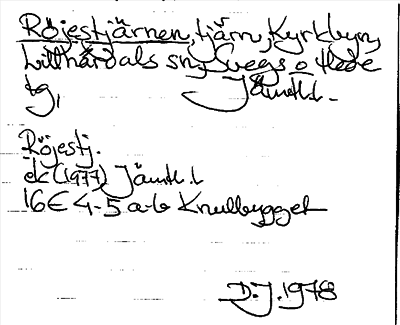 Röjestjärnen, tjärn, Kyrkbyn,
Lillhärdals sn, Svegs o Hede
tg, Jämtl.l.
Röjestj.
ek (1977) Jämtl.l
16E 4-5 a-b Knullbygget
D.J. 1978